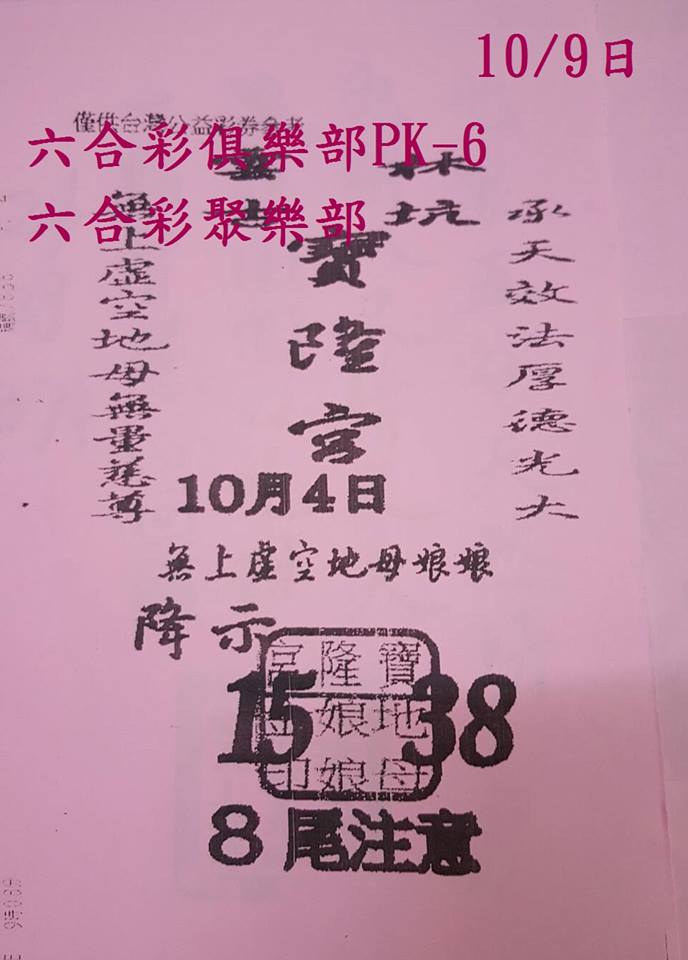 10/9日
僅供台灣公益彩券參考
六合彩俱樂部PK-6
六合彩聚樂部
林
坑
承天效法厚德光大
寶隆宮
無上虛空地母無量慈尊
10月4日
無上虛空地母娘娘
降示
寶隆宮
地娘
母娘印
15 38
8尾注意